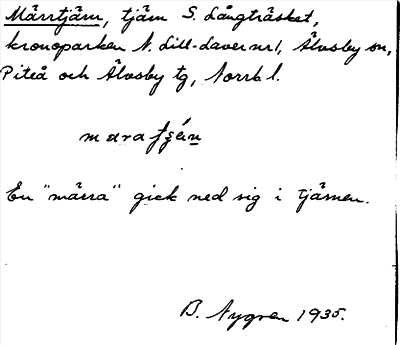 Märrtjärn, tjärn S. Långträsket,
kronoparken N. Lill-Laver nr 1, Älvsby sn,
Piteå och Älvsby tg, Norrb l.
En "märra" gick ned sig i tjärnen.
B. Nygren 1935.